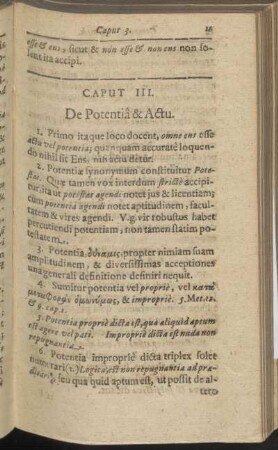 Caput 3.
esse & ens, sicut & non esse & non ens non so-
lent ita accipi.
CAPUT III.
De Potentiâ & Actu.
1. Primo itaque loco docent, omne ens esse
actu vel potentia; quanquam accuratè loquen-
do nihil sit Ens, nisi actu detur.
2. Potentiæ synonymum constituitur Pote-
stas. Quæ tamen vox interdum strictè accipi-
tur, ita ut potestas agendi notet jus & licentiam;
cum potentia agendi notet aptitudinem, facul-
tatem & vires agendi. V.g. vir robustus habet
percutiendi potentiam, non tamen statim po-
testatem.
3. Potentia, δύναμις, propter nimiam suam
amplitudinem, & diversissimas acceptiones
una generali definitione definiri nequit.
4. Sumitur potentia vel propriè, vel
ὁμωνύμως, & impropriè. 5. Met. 12.
& 9. cap. 1.
5. Potentia propriè dicta est, qua aliquid aptum
est agere vel pati. Impropriè dicta est nuda non
repugnantia.
6. Potentia impropriè dicta triplex solet
numerari. 1. Logica, est non repugnantia ad præ-
seu qua quid aptum est, ut possit de al-
tero